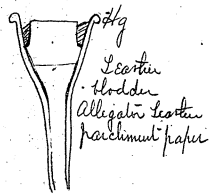 Hg
Leather
bladder
Allegator Leather
parchment paper